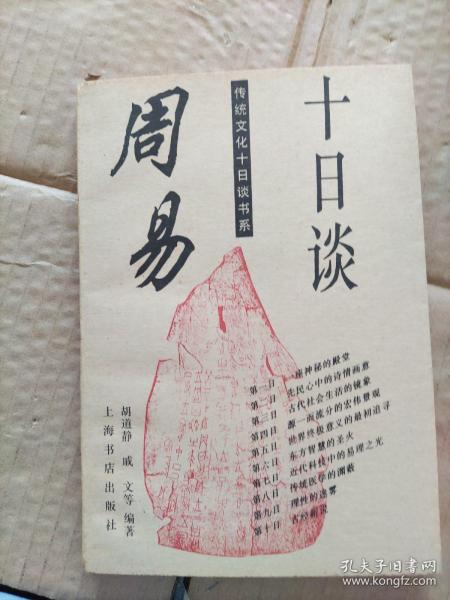 周易
十日谈
传统文化十日谈书系
第一日 一座神秘的殿堂
第二日 先民心中的诗情画意
第三日 古代社会生活的镜象
第四日 源一而流分的宏伟景观
第五日 世界终极意义的最初追寻
第六日 东方智慧的圣火
第七日 近代科技中的易理之光
第八日 传统医学的渊薮
第九日 理性的迷雾
第十日 古经新说
胡道静 戚文等 编著
上海书店出版社
孔夫子旧书网
www.kongfz.com